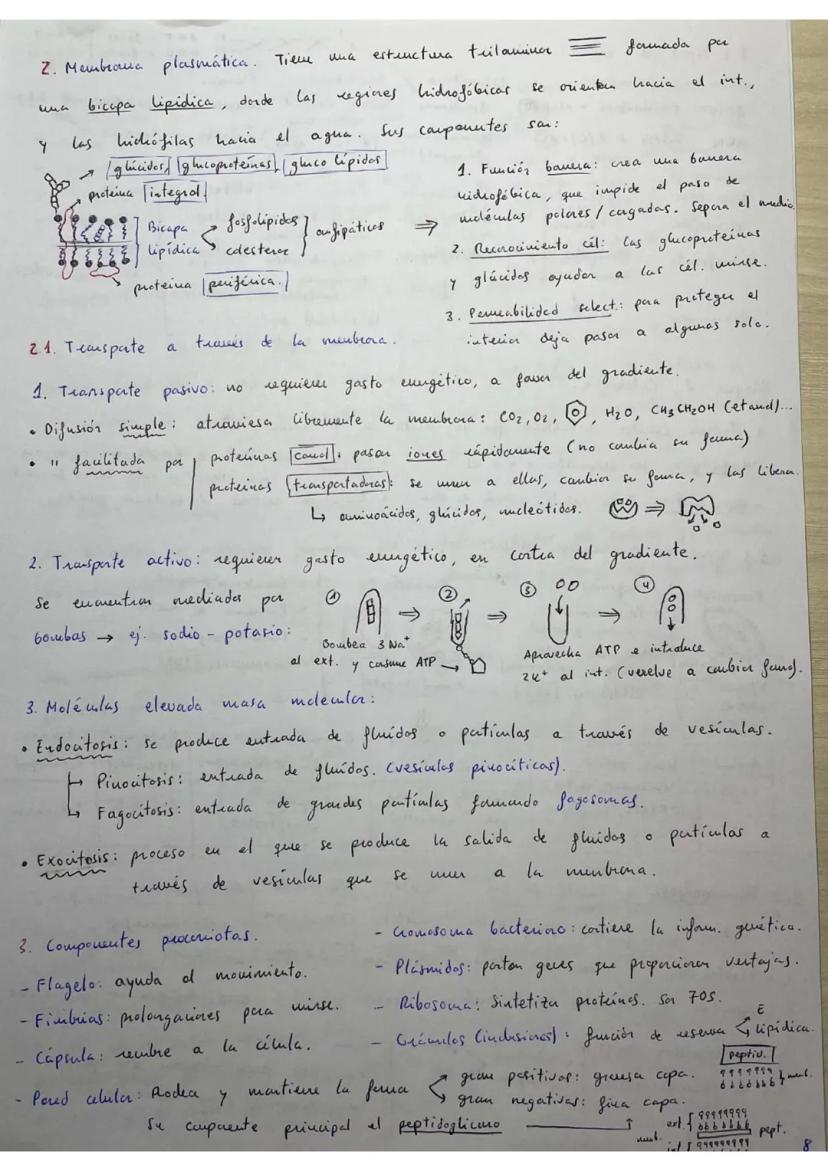 2. Membrana plasmática. Tiene una estructura trilaminar formada por
una bicapa lipídica, donde las regiones hidrofóbicas se orientan hacia el int.,
y las hidrófilas hacia el agua. Sus componentes son:
glúcidos, glucoproteínas, glucolípidos
proteína integral
Bicapa lipídica
fosfolípidos
colesterol
anfipáticos
proteína periférica.
1. Función barrera: crea una barrera
hidrofóbica, que impide el paso de
moléculas polares/cargadas. Separa el medio.
2. Reconocimiento cél: las glucoproteínas
y glúcidos ayudan a las cél. unirse.
3. Permeabilidad select.: para proteger el
interior deja pasar a algunas solo.
2.1. Transporte a través de la membrana.
1. Transporte pasivo: no requieren gasto energético, a favor del gradiente.
• Difusión simple: atraviesa libremente la membrana: CO2, O2, , H2O, CH3CH2OH (etanol)...
• " facilitada por
proteínas canal: pasan iones rápidamente (no cambia su forma)
proteínas transportadoras: se unen a ellas, cambian su forma, y las liberan.
↳ aminoácidos, glúcidos, nucleótidos. ⇒
2. Transporte activo: requieren gasto energético, en contra del gradiente.
Se encuentran mediados por
bombas → ej. sodio-potasio:
① ⇒ ② ⇒ ③ ⇒ ④
Bombea 3 Na+
al ext. y consume ATP
Aprovecha ATP e introduce
2K+ al int. (vuelve a cambiar forma).
3. Moléculas elevada masa molecular:
• Endocitosis: se produce entrada de fluidos o partículas a través de vesículas.
Pinocitosis: entrada de fluidos. (vesículas pinocíticas).
Fagocitosis: entrada de grandes partículas formando fagosomas.
• Exocitosis: proceso en el que se produce la salida de fluidos o partículas a
través de vesículas que se unen a la membrana.
3. Componentes procariotas.
- Flagelo: ayuda al movimiento.
- Fimbrias: prolongaciones para unirse.
- Cápsula: recubre a la célula.
- Cromosoma bacteriano: contiene la inform. genética.
- Plásmidos: portan genes que proporcionan ventajas.
- Ribosoma: Sintetiza proteínas. Son 70S.
- Gránulos (inclusiones): función de reserva
E
lipídica.
- Pared celular: Rodea y mantiene la forma
gram positivas: gruesa capa.
gram negativas: fina capa.
Su componente principal el peptidoglicano
peptid.
memb.
memb.
ext.
int
pept.
8